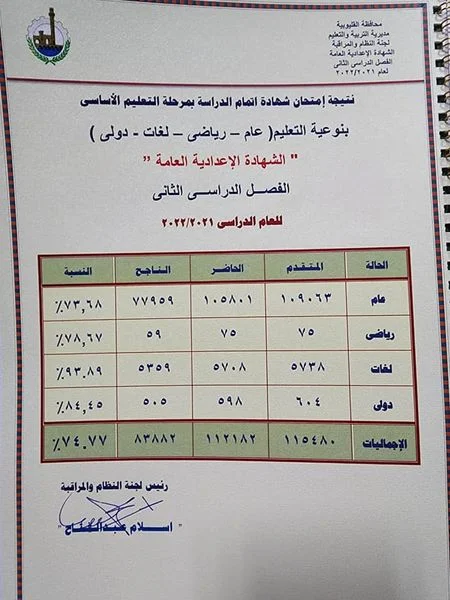 محافظة القليوبية
مديرية التربية والتعليم
لجنة النظام والمراقبة
الشهادة الإعدادية العامة
الفصل الدراسى الثانى
لعام ٢٠٢٢/٢٠٢١
نتيجة إمتحان شهادة اتمام الدراسة بمرحلة التعليم الأساسى
بنوعية التعليم( عام – رياضى – لغات - دولى )
" الشهادة الإعدادية العامة "
الفصل الدراسى الثانى
للعام الدراسى ٢٠٢٢/٢٠٢١
الحالة المتقدم الحاضر الناجح النسبة
عام ١٠٩٠٦٣ ١٠٥٨٠١ ٧٧٩٥٩ ٧٣,٦٨٪
رياضى ٧٥ ٧٥ ٥٩ ٧٨,٦٧٪
لغات ٥٧٣٨ ٥٧٠٨ ٥٣٥٩ ٩٣.٨٩٪
دولى ٦٠٤ ٥٩٨ ٥٠٥ ٨٤,٤٥٪
الإجماليات ١١٥٤٨٠ ١١٢١٨٢ ٨٣٨٨٢ ٧٤.٧٧٪
رئيس لجنة النظام والمراقبة
" اسلام عبدالفتاح "